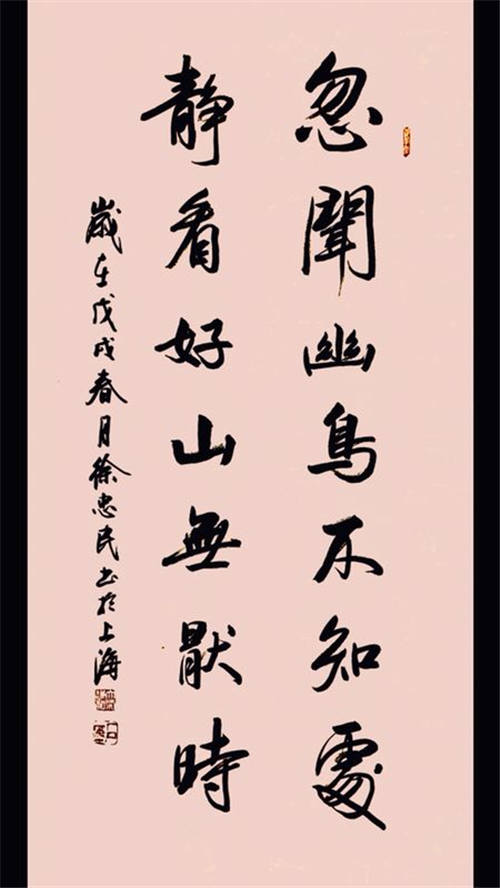 忽聞幽鳥不知處
靜看好山無厭時
歲在戊戌春月徐忠民书於上海